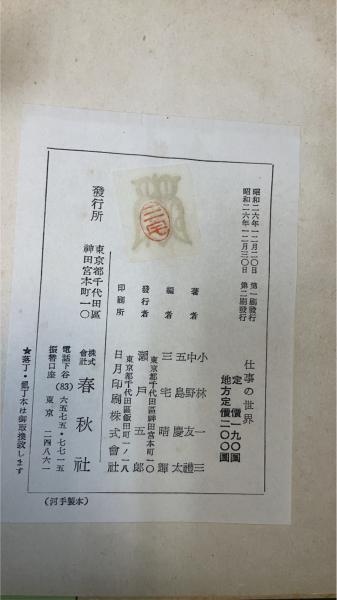 昭和二六年一二月二〇日 第一刷發行
昭和二六年一二月三〇日 第二刷發行
仕事の世界
定價一九〇圓
地方定價二〇〇圓
著者 小林一三
中野友禮
五島慶太
編者 三宅晴輝
東京都千代田區神田宮本町一〇
發行者 瀬戸五郎
東京都千代田區飯田町一ノ一八
印刷所 日月印刷株式會社
發行所
東京都千代田區
神田宮本町一〇
株式會社 春秋社
電話下谷(83)六五七五・七七一五
振替口座 東京 二四八六一
★落丁・亂丁本は御取換致します
(河手製本)
三宅